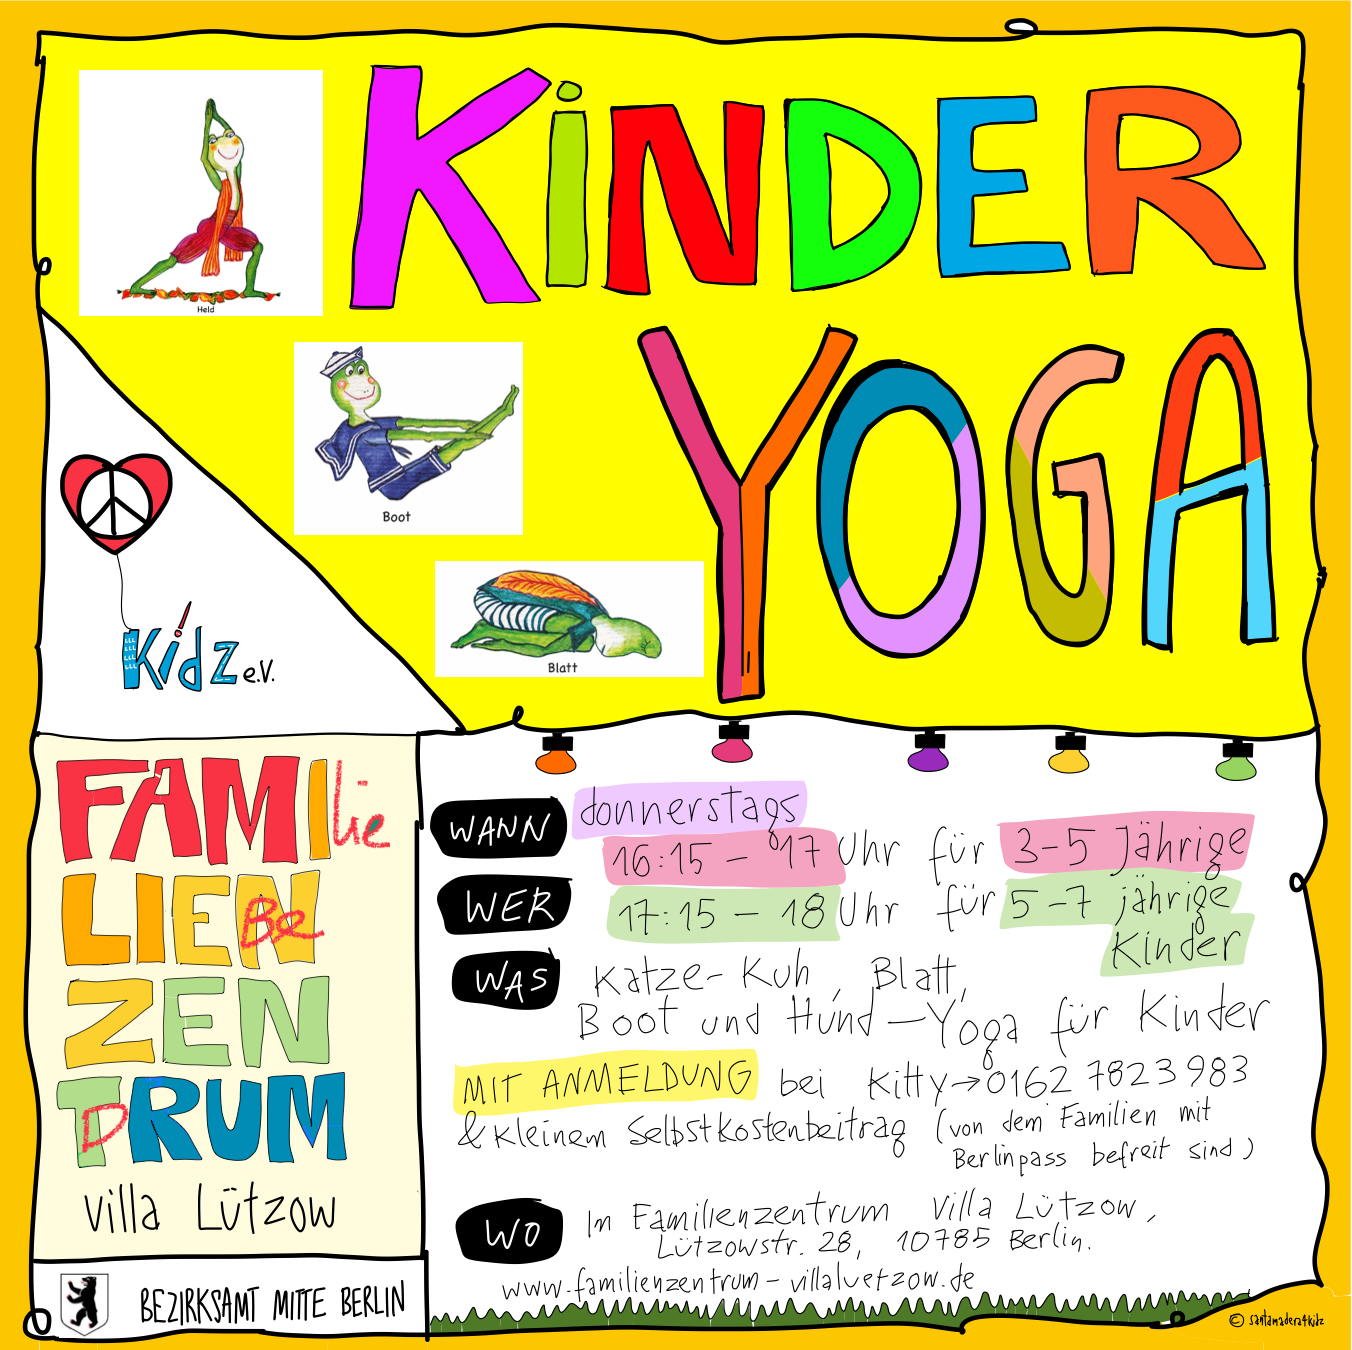 KiNDER
YOGA
Held
Boot
Blatt
Kidz e.V.
FAMILie
LIEBeN
ZEN
TRUM
Villa Lützow
BEZIRKSAMT MITTE BERLIN
WANN donnerstags
16:15 - 17 Uhr für 3-5 Jährige
WER 17:15 - 18 Uhr für 5-7 jährige
Kinder
WAS Katze-Kuh, Blatt,
Boot und Hund-Yoga für Kinder
MIT ANMELDUNG bei Kitty → 0162 7823983
& kleinem Selbstkostenbeitrag (von dem Familien mit
Berlinpass befreit sind)
WO In Familienzentrum Villa Lützow,
Lützowstr. 28, 10785 Berlin.
www.familienzentrum-villaluetzow.de
© santamadera4kidz